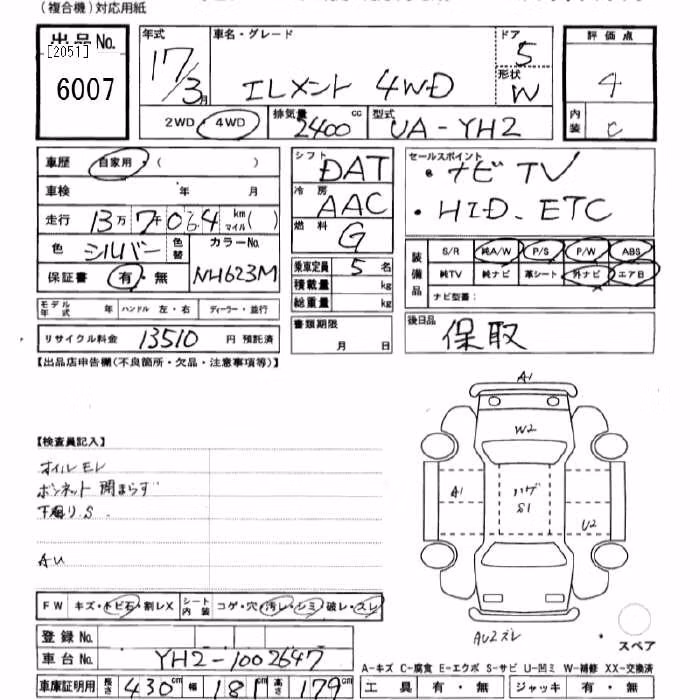 （複合機）対応用紙
出品No.
[2051]
6007
年式
17/3月
車名・グレード
エレメント 4WD
ドア
5
形状
W
評価点
4
内装
C
2WD・4WD
排気量
2400 cc
型式
UA-YH2
車歴 自家用・( )
車検 年 月
走行 13万7千064 km マイル ( )
色 シルバー 色替
カラーNo.
NH623M
保証書 有・無
モデル年式 年 ハンドル 左・右 ディーラー・並行
リサイクル料金 13510 円 預託済
シフト DAT
冷房 AAC
燃料 G
乗車定員 5 名
積載量 kg
総重量 kg
書類期限
月 日
セールスポイント
・ナビTV
・HID、ETC
装備品
S/R 純A/W P/S P/W ABS
純TV 純ナビ 革シート 外ナビ エアB
ナビ型番：
後日品
保取
【出品店申告欄(不良箇所・欠品・注意事項等)】
【検査員記入】
オイルモレ
ボンネット 開まらず
下廻りS
AU
A1
W2
A1
ハゲ
S1
U2
AU2ズレ
スペア
FW キズ・トビ石・割レX
シート内装 コゲ・穴・汚レ・シミ・破レ・スレ
登録No.
車台No. YH2-1002647
車庫証明用 長さ 430cm 幅 181cm 高さ 179cm
A-キズ C-腐食 E-エクボ S-サビ U-凹ミ W-補修 XX-交換済
工具 有・無 ジャッキ 有・無